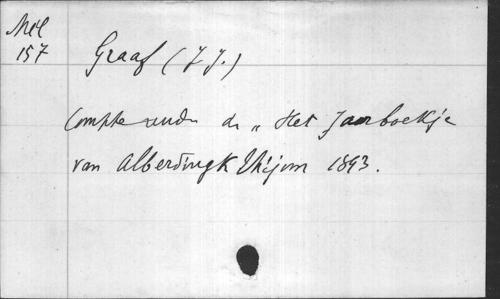 Mél
157
Graaf (J J.)
Compte rendu de „ Het Jaarboekje
van Alberdingk Thijm 1893.